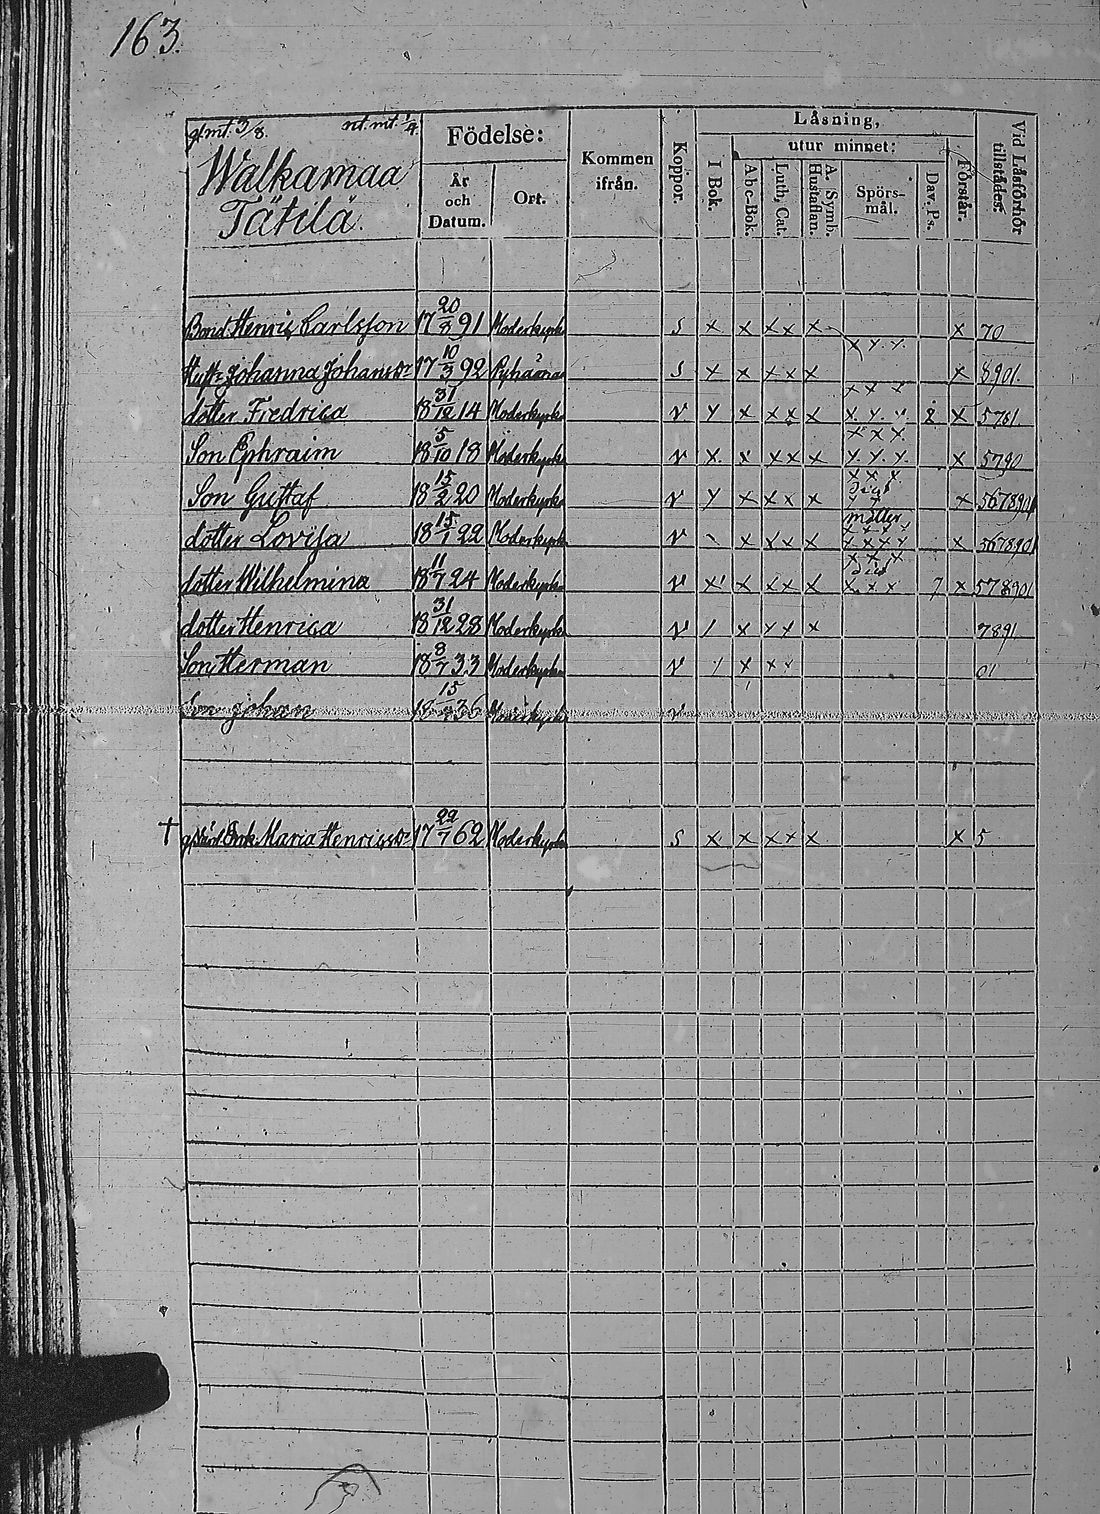 163.
gl. mt. 3/8. nt. mt. 1/4
Walkamaa
Tätilä.
Födelse:
År och Datum.
Ort.
Kommen ifrån.
Koppor.
Läsning,
I Bok.
utur minnet:
Abc-Bok.
Luth. Cat.
A. Symb. Hustaflan.
Spörsmål.
Dav. Ps.
Förstår.
Vid Läsförhör tillstädes.
Bond. Henric Carlsson 17 20/8 91 Moderkyrk. S x x x x x x x x x 70
Hust. Johanna Johansdr 17 10/3 92 Pyhäära S x x x x x x x x x 8901
dotter Fredrica 18 31/12 14 Moderkyrk. V x x x x x x x x 2 x 5781
Son Ephraim 18 5/10 18 Moderkyrk. V x x x x x x x x x 5790
Son Gustaf 18 15/2 20 Moderkyrk. V x x x x x x 5678901
dotter Lovisa 18 15/1 22 Moderkyrk. V x x x x x x x x x 567890
dotter Wilhelmina 18 11/7 24 Moderkyrk. V x x x x x x x x 7 x 578901
dotter Henrica 18 31/12 28 Moderkyrk. V / x x x x 7891
Son Herman 18 8/7 33 Moderkyrk. V / x x x 01
Son Johan 15 36 Moderkyrk. V
† Enk. Maria Henricsdr 17 22/7 62 Moderkyrk. S x x x x x x 5